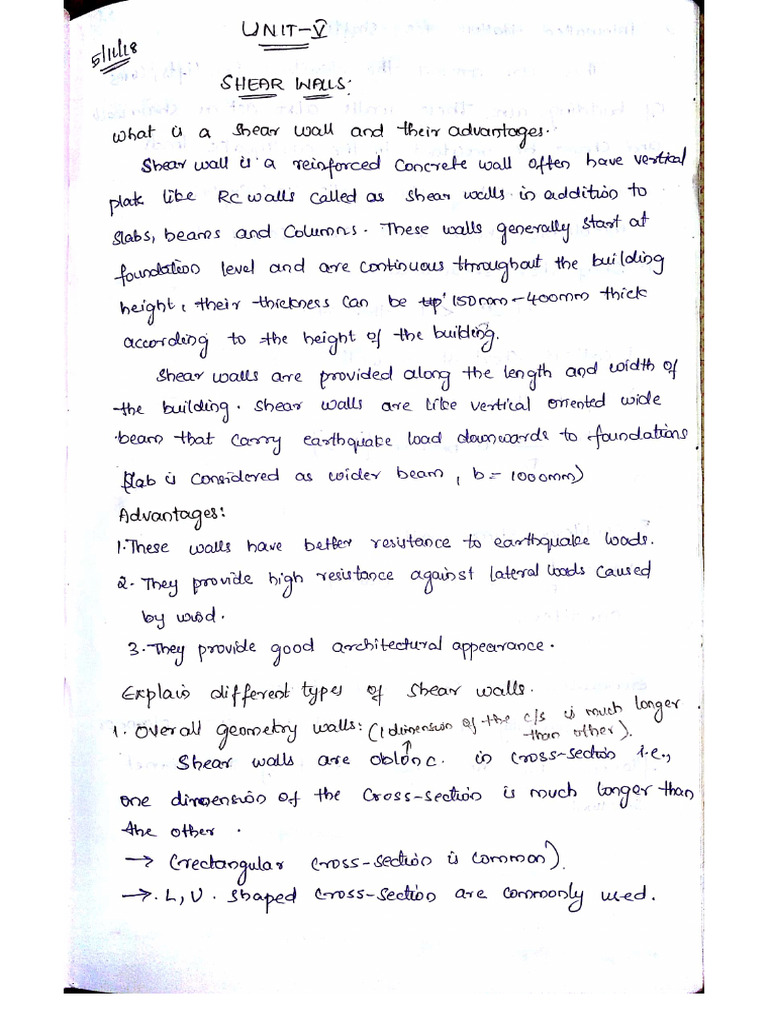 UNIT-V
5/11/18
SHEAR WALLS:
What is a shear wall and their advantages.
Shear wall is a reinforced concrete wall often have vertical
plate like RC walls called as shear walls in addition to
slabs, beams and columns. These walls generally start at
foundation level and are continuous throughout the building
height, their thickness can be 150mm-400mm thick
according to the height of the building.
Shear walls are provided along the length and width of
the building. Shear walls are like vertical oriented wide
beam that carry earthquake load downwards to foundations
(slab is considered as wider beam, b = 1000mm)
Advantages:
1. These walls have better resistance to earthquake loads.
2. They provide high resistance against lateral loads caused
by wind.
3. They provide good architectural appearance.
Explain different types of shear walls.
1. Overall geometry walls: (1 dimension of the c/s is much longer
than other).
Shear walls are oblonc. in cross-section i.e.,
one dimension of the cross-section is much longer than
the other.
→ (rectangular cross-section is common).
→ L, U. shaped cross-section are commonly used.